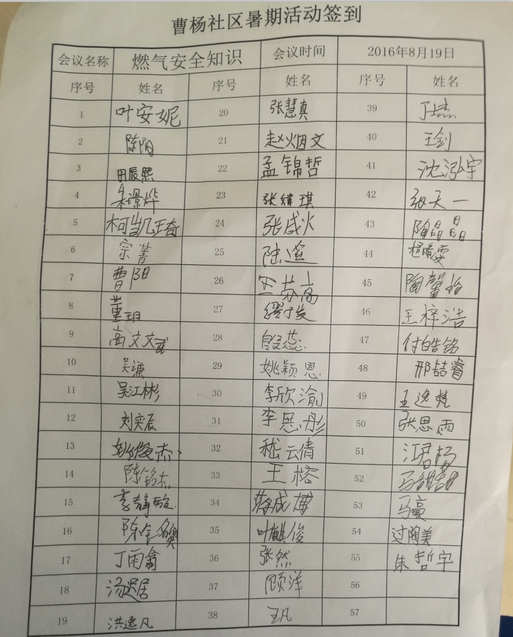 曹杨社区暑期活动签到
会议名称 燃气安全知识 会议时间 2016年8月19日
序号 姓名 序号 姓名 序号 姓名
1 叶安妮 20 张慧真 39 丁杰
2 陈阳 21 赵烟文 40 王剑
3 田宸熙 22 孟锦哲 41 沈泓宇
4 朱景烨 23 张绮琪 42 张天一
5 柯凯琦 24 张成火 43 陶晶晶
6 宗菁 25 陆逾 44 程晓雯
7 曹阳 26 王苏高 45 陶馨怡
8 董玥 27 缪发 46 王祥浩
9 高文文 28 殷蕊 47 付皓铭
10 吴谦 29 姚颖恩 48 邢喆睿
11 吴江彬 30 李欣渝 49 王逸梵
12 刘奕辰 31 李思彤 50 张思雨
13 杰 32 嵇云倩 51 江君
14 陈铭杰 33 王榕 52 马甜甜
15 李静 34 蒋成博 53 马豪
16 陈 35 叶麒俊 54 过陶美
17 丁雨禽 36 张然 55 朱哲宇
18 汤居 37 顾洋 56
19 洪逸凡 38 王凡 57